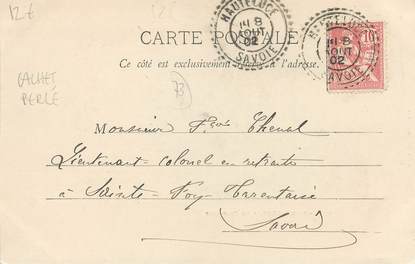 12€
HAUTELUCE
8
AOUT
02
SAVOIE
HAUTELUCE
8
AOUT
02
SAVOIE
10
CARTE POSTALE
Ce côté est exclusivement à l'adresse.
CACHET
PERLÉ
73
Monsieur Fçois Chenal
Lieutenant-colonel en retraite
à Sainte-Foy-Tarentaise
Savoie